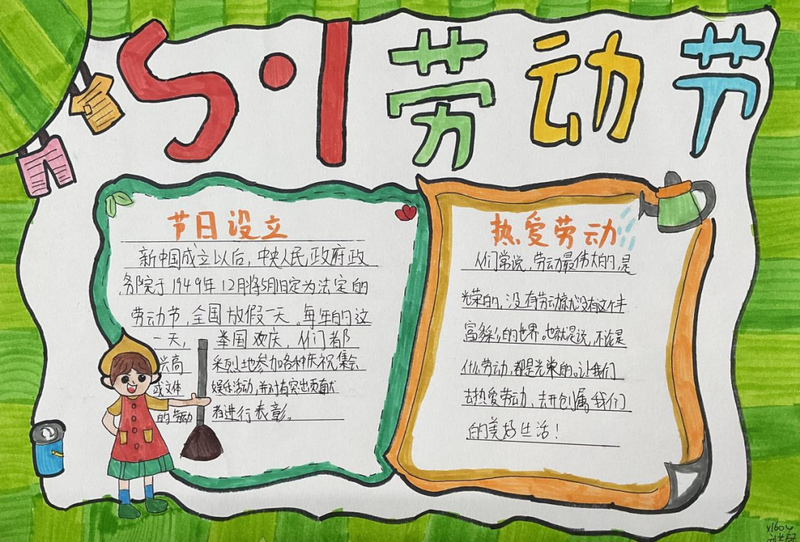 5·1 劳动节
节日设立
新中国成立以后,中央人民政府政
务院于1949年12月将5月1日定为法定的
劳动节,全国放假一天。每年的这
一天,举国欢庆,人们都
兴高采烈地参加各种庆祝集会
或文体娱乐活动,并对有突出贡献
的劳动者进行表彰。
热爱劳动
人们常说,劳动最伟大的,是
光荣的,没有劳动就没有这个丰
富多彩的世界。也就是说,不论是
什么劳动,都是光荣的。让我们
去热爱劳动,去开创属我们
的美好生活!